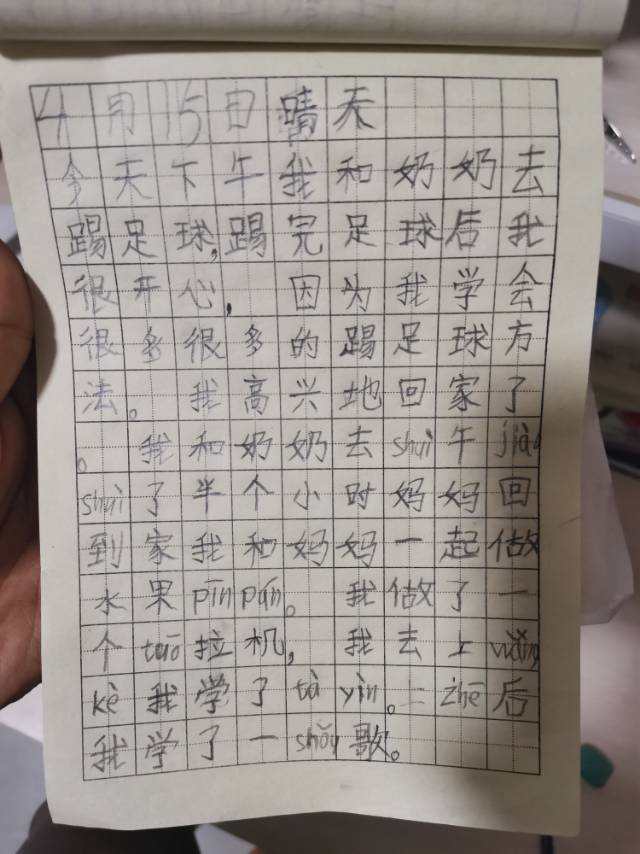 4月15日晴天
今天下午我和奶奶去
踢足球,踢完足球后我
很开心, 因为我学会
很多很多的踢足球方
法。我高兴地回家了
。我和奶奶去shuì午jiào
shuì了半个小时妈妈回
到家我和妈妈一起做
水果pīn pán。我做了一
个tuō拉机,我去上wǎng
kè我学了tà yìn。上zhē后
我学了一shǒu歌。